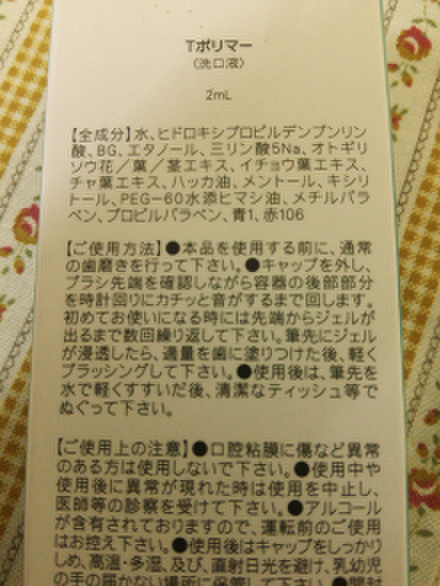 Tポリマー
(洗口液)
2mL
【全成分】水、ヒドロキシプロピルデンプンリン
酸、BG、エタノール、三リン酸5Na、オトギリ
ソウ花/葉/茎エキス、イチョウ葉エキス、
チャ葉エキス、ハッカ油、メントール、キシリ
トール、PEG-60水添ヒマシ油、メチルパラ
ベン、プロピルパラベン、青1、赤106
【ご使用方法】●本品を使用する前に、通常
の歯磨きを行って下さい。●キャップを外し、
ブラシ先端を確認しながら容器の後部部分
を時計回りにカチッと音がするまで回します。
初めてお使いになる時には先端からジェルが
出るまで数回繰り返して下さい。筆先にジェル
が浸透したら、適量を歯に塗りつけた後、軽く
ブラッシングして下さい。●使用後は、筆先を
水で軽くすすいだ後、清潔なティッシュ等で
ぬぐって下さい。
【ご使用上の注意】●口腔粘膜に傷など異常
のある方は使用しないで下さい。●使用中や
使用後に異常が現れた時は使用を中止し、
医師等の診察を受けて下さい。●アルコール
が含有されておりますので、運転前のご使用
はお控え下さい。●使用後はキャップをしっかり
しめ、高温・多湿、及び、直射日光を避け、乳幼児
の手の届かない場所に保管して下さい。●開